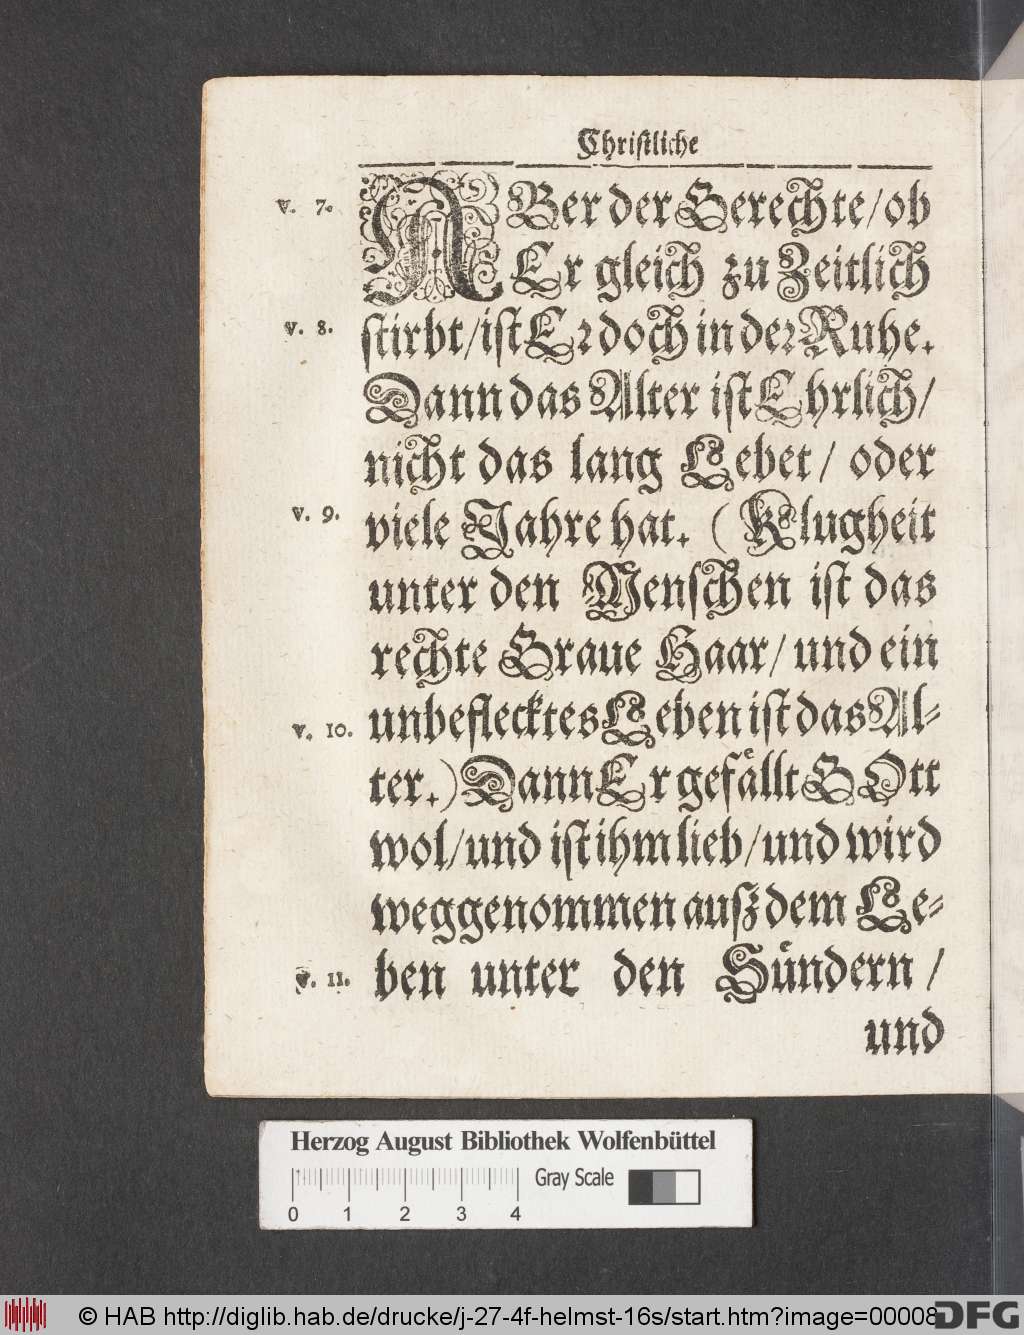 Christliche
v. 7. ABer der Gerechte/ob
Er gleich zu Zeitlich
v. 8. stirbt/ist Er doch in der Ruhe.
Dann das Alter ist Ehrlich/
nicht das lang Lebet/ oder
v. 9. viele Jahre hat. (Klugheit
unter den Menschen ist das
rechte Graue Haar/ und ein
v. 10. unbeflecktes Leben ist das Al-
ter.) Dann Er gefällt GOtt
wol/und ist ihm lieb/und wird
weggenommen auß dem Le-
v. 11. ben unter den Sündern/
und
Herzog August Bibliothek Wolfenbüttel
Gray Scale
0 1 2 3 4
© HAB http://diglib.hab.de/drucke/j-27-4f-helmst-16s/start.htm?image=00008
DFG